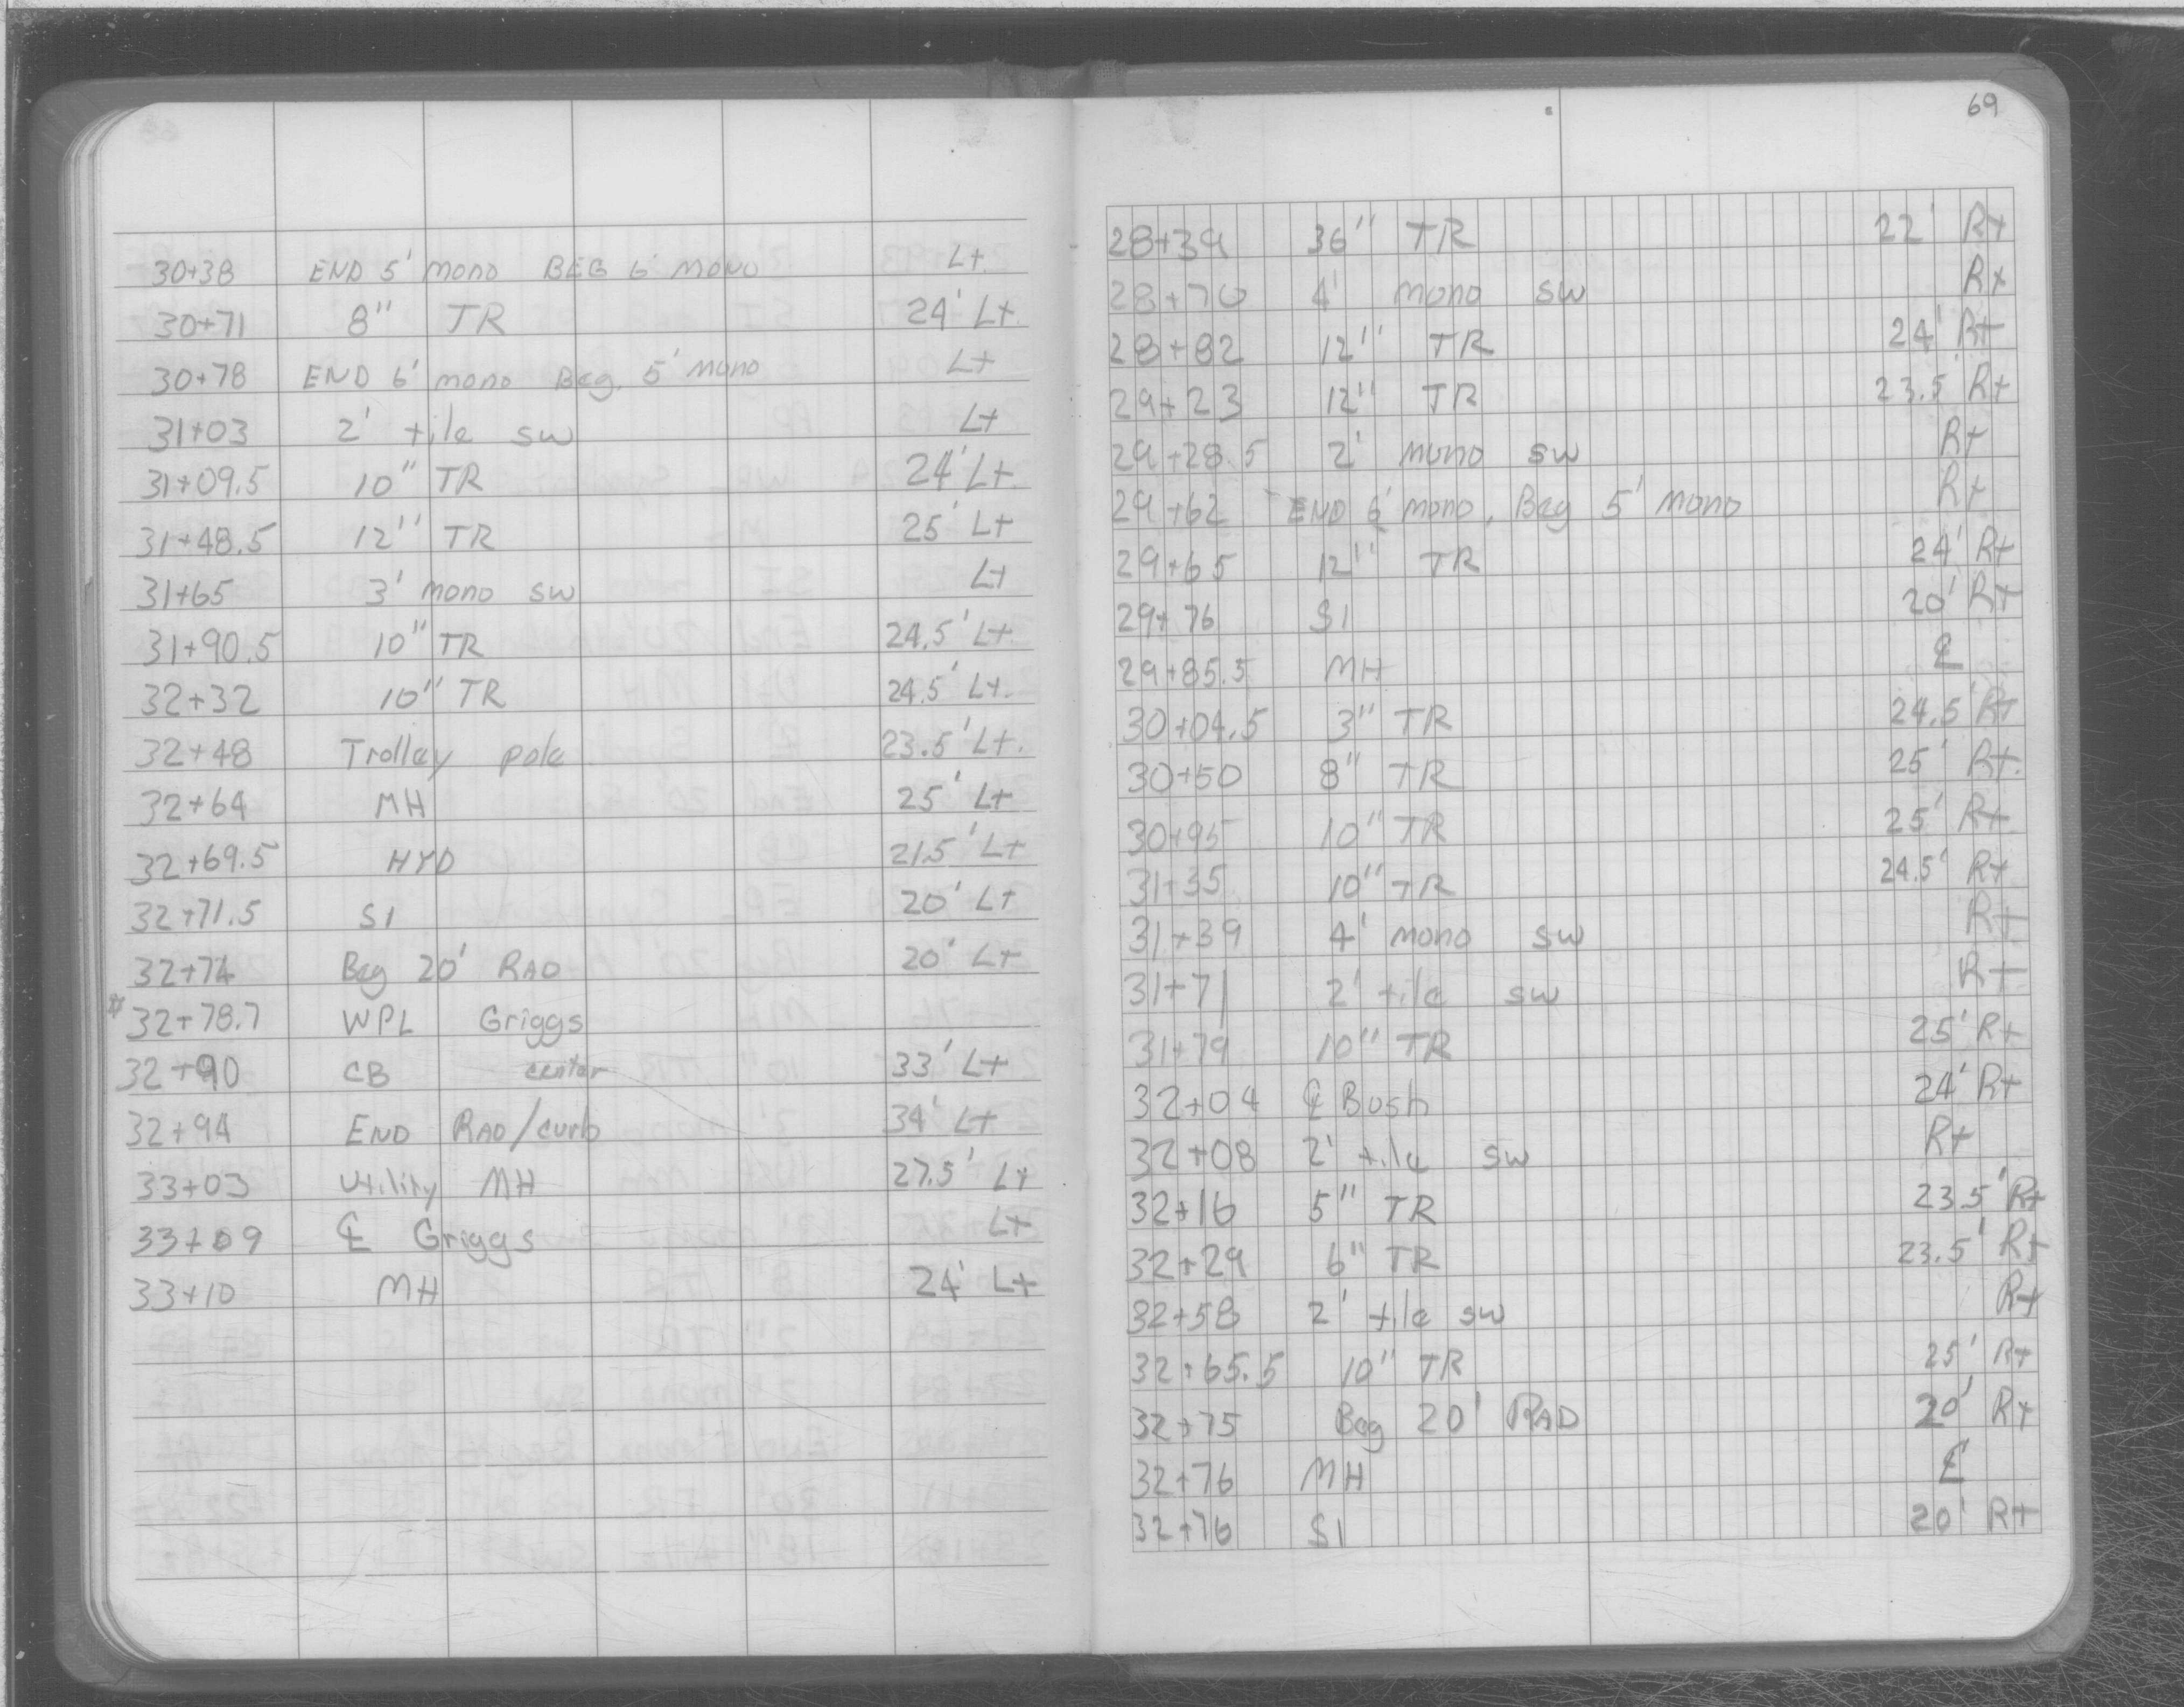 30+38 END 5' mono BEG 6' mono Lt.
30+71 8" TR 24' Lt.
30+78 END 6' mono Beg. 5' mono Lt
31+03 2' tile sw Lt
31+09.5 10" TR 24' Lt.
31+48.5 12" TR 25' Lt
31+65 3' mono sw Lt
31+90.5 10" TR 24.5' Lt
32+32 10" TR 24.5' Lt.
32+48 Trolley pole 23.5' Lt.
32+64 MH 25' Lt
32+69.5 HYD 21.5' Lt
32+71.5 SI 20' Lt
32+74 Beg 20' RAD 20' Lt
32+78.7 WPL Griggs
32+90 CB center 33' Lt
32+94 END RAD/curb 34' Lt
33+03 Utility MH 27.5' Lt
33+09 ℄ Griggs Lt
33+10 MH 24' Lt
69
28+39 36" TR 22' Rt
28+70 4' mono sw Rt
28+82 12" TR 24' Rt
29+23 12" TR 23.5' Rt
29+28.5 2' mono sw Rt
29+62 END 6' mono, Beg 5' mono Rt
29+65 12" TR 24' Rt
29+76 SI 20' Rt
29+85.5 MH ℄
30+04.5 3" TR 24.5' Rt
30+50 8" TR 25' Rt.
30+95 10" TR 25' Rt
31+35 10" TR 24.5' Rt
31+39 4' mono sw Rt
31+71 2' tile sw Rt
31+79 10" TR 25' Rt
32+04 ℄ Bush 24' Rt
32+08 2' tile sw Rt
32+16 5" TR 23.5' Rt
32+29 6" TR 23.5' Rt
32+58 2' tile sw Rt
32+65.5 10" TR 25' Rt
32+75 Beg 20' RAD 20' Rt
32+76 MH ℄
32+76 SI 20' Rt